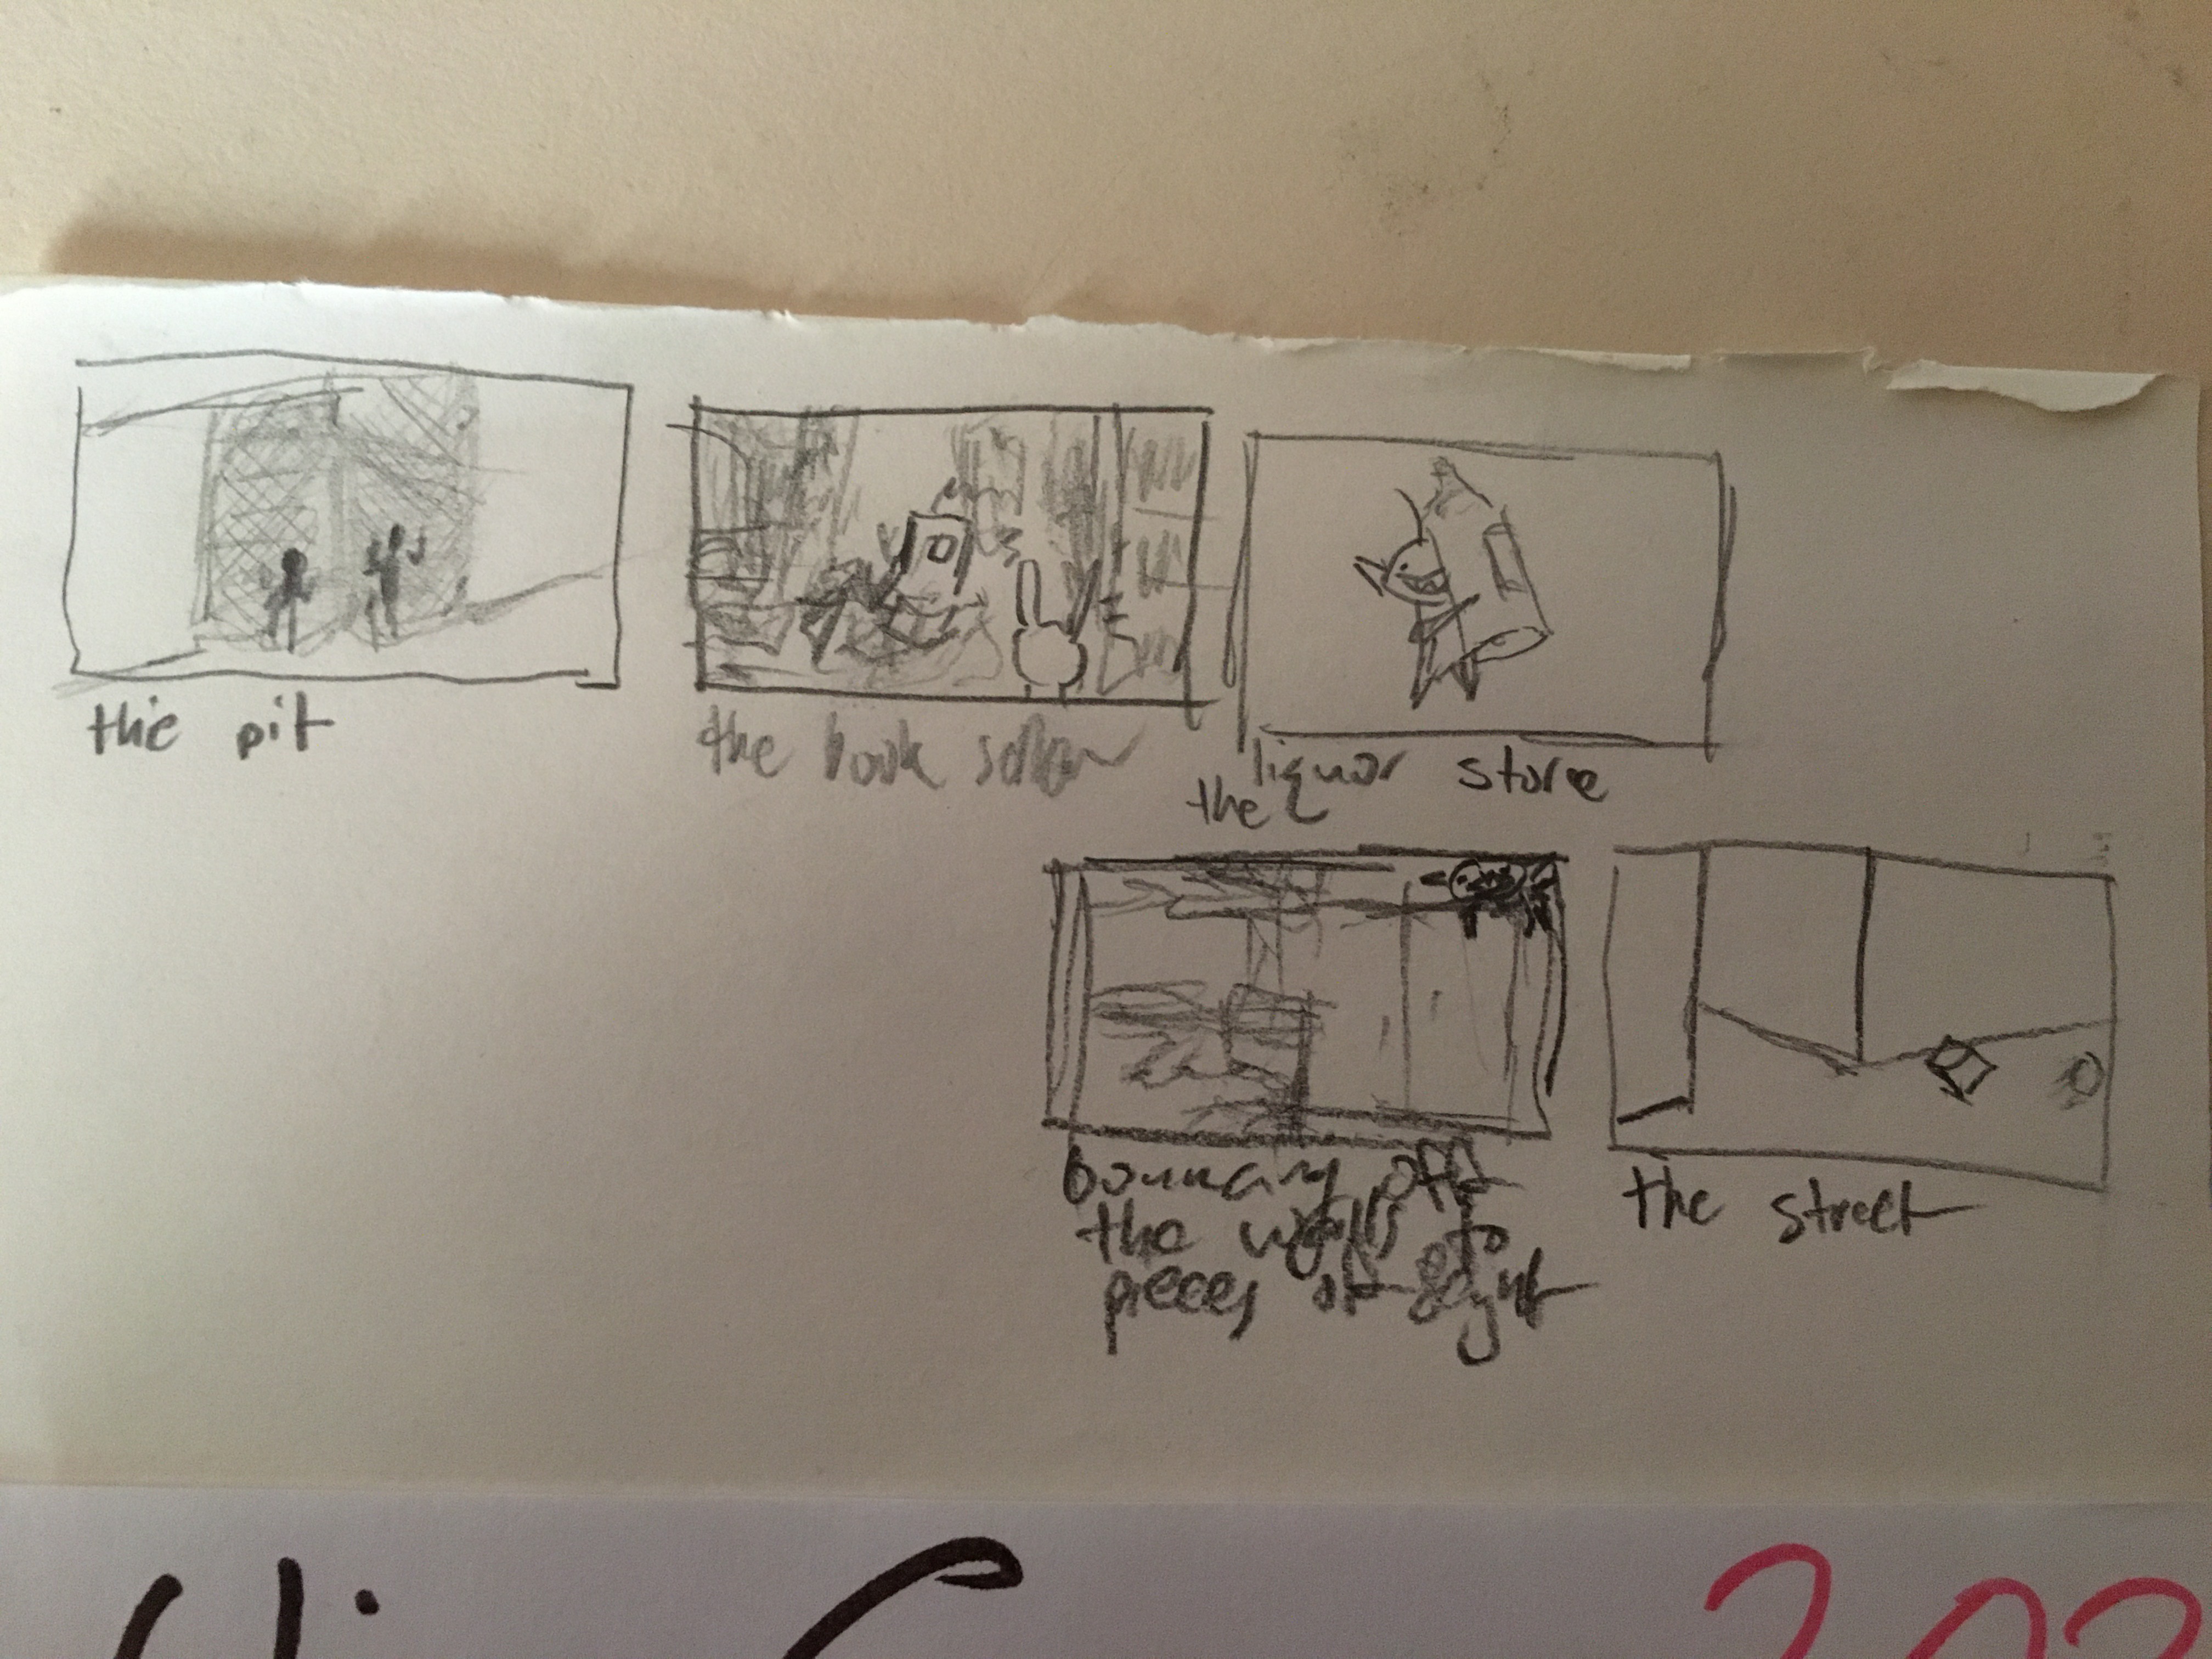 the pit
the book seller
liquor store
the
bouncing off
the walls to
pieces of light
the street